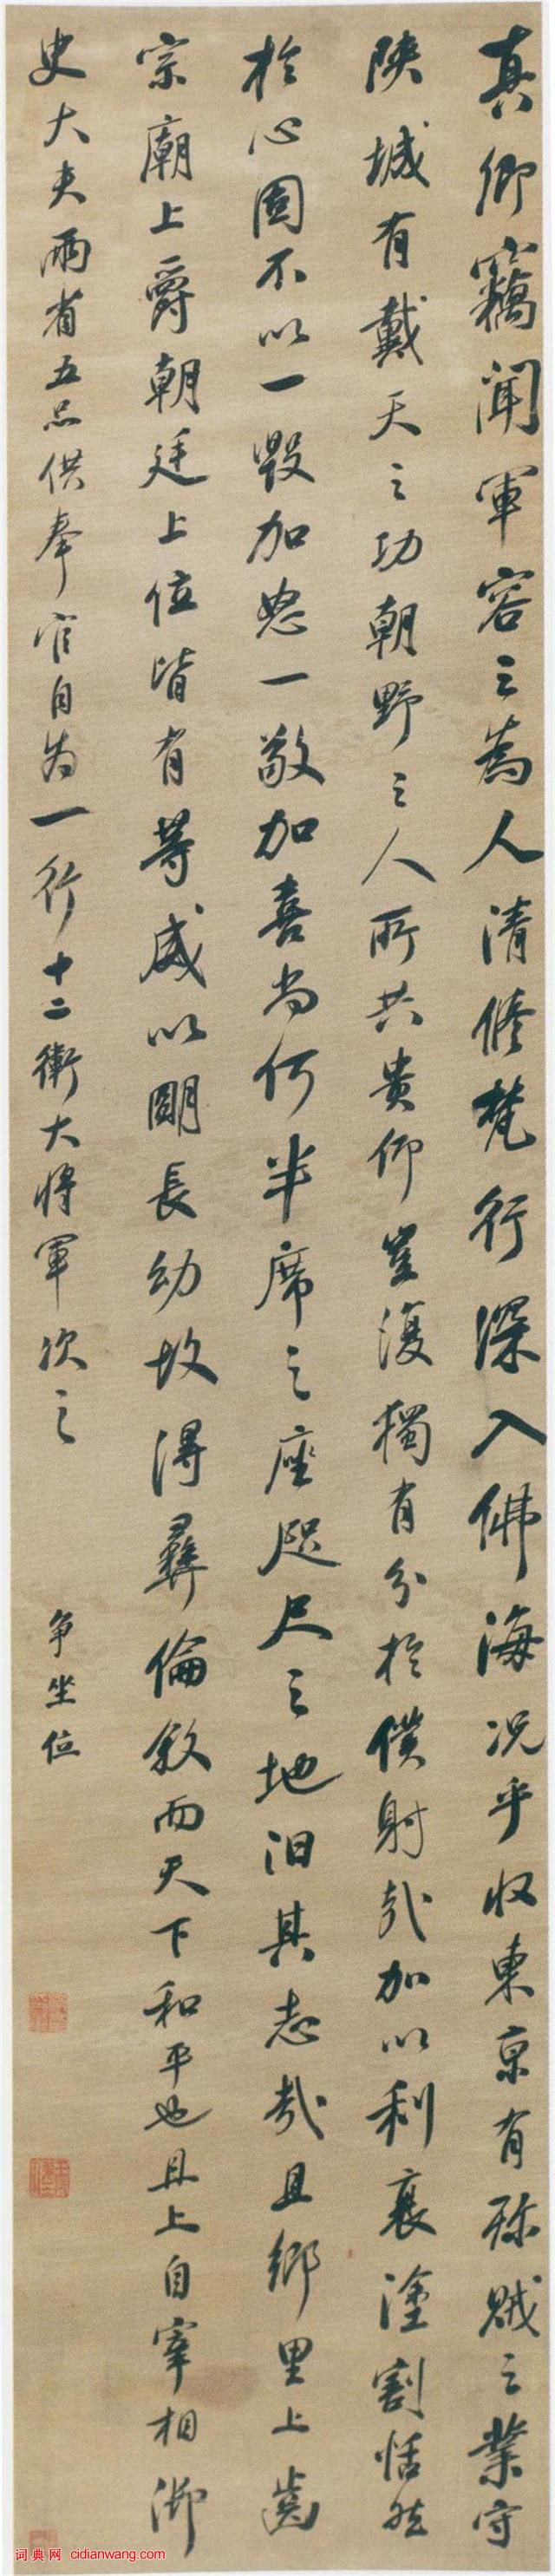 真卿竊聞軍容之為人清修梵行深入佛海況乎收東京有殄賊之業守
陝城有戴天之功朝野之人所共貴仰豈復獨有分於僕射哉加以利衰塗割恬然
於心固不以一毀加怒一敬加喜尚何半席之座咫尺之地汨其志哉且鄉里上齒
宗廟上爵朝廷上位皆有等威以朙長幼故得彝倫敘而天下和平也且上自宰相御
史大夫兩省五品供奉官自為一行十二衛大將軍次之
爭坐位
词典网 cidianwang.com